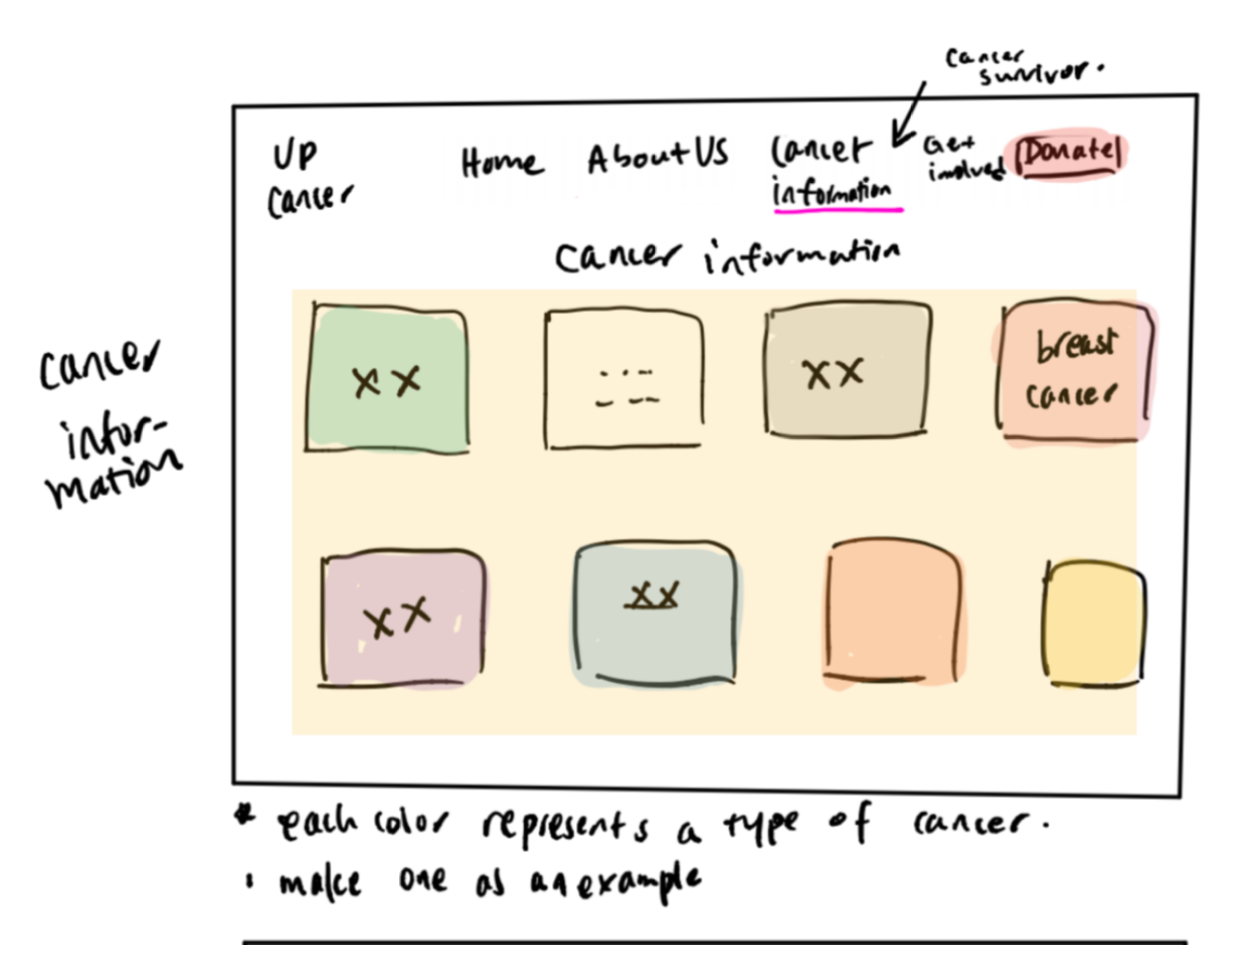 cancer
survivor.
UP
cancer
Home
About US
cancer
information
Get
involved
Donate
cancer information
cancer
infor-
mation
XX
XX
breast
cancer
XX
XX
* each color represents a type of cancer.
· make one as an example